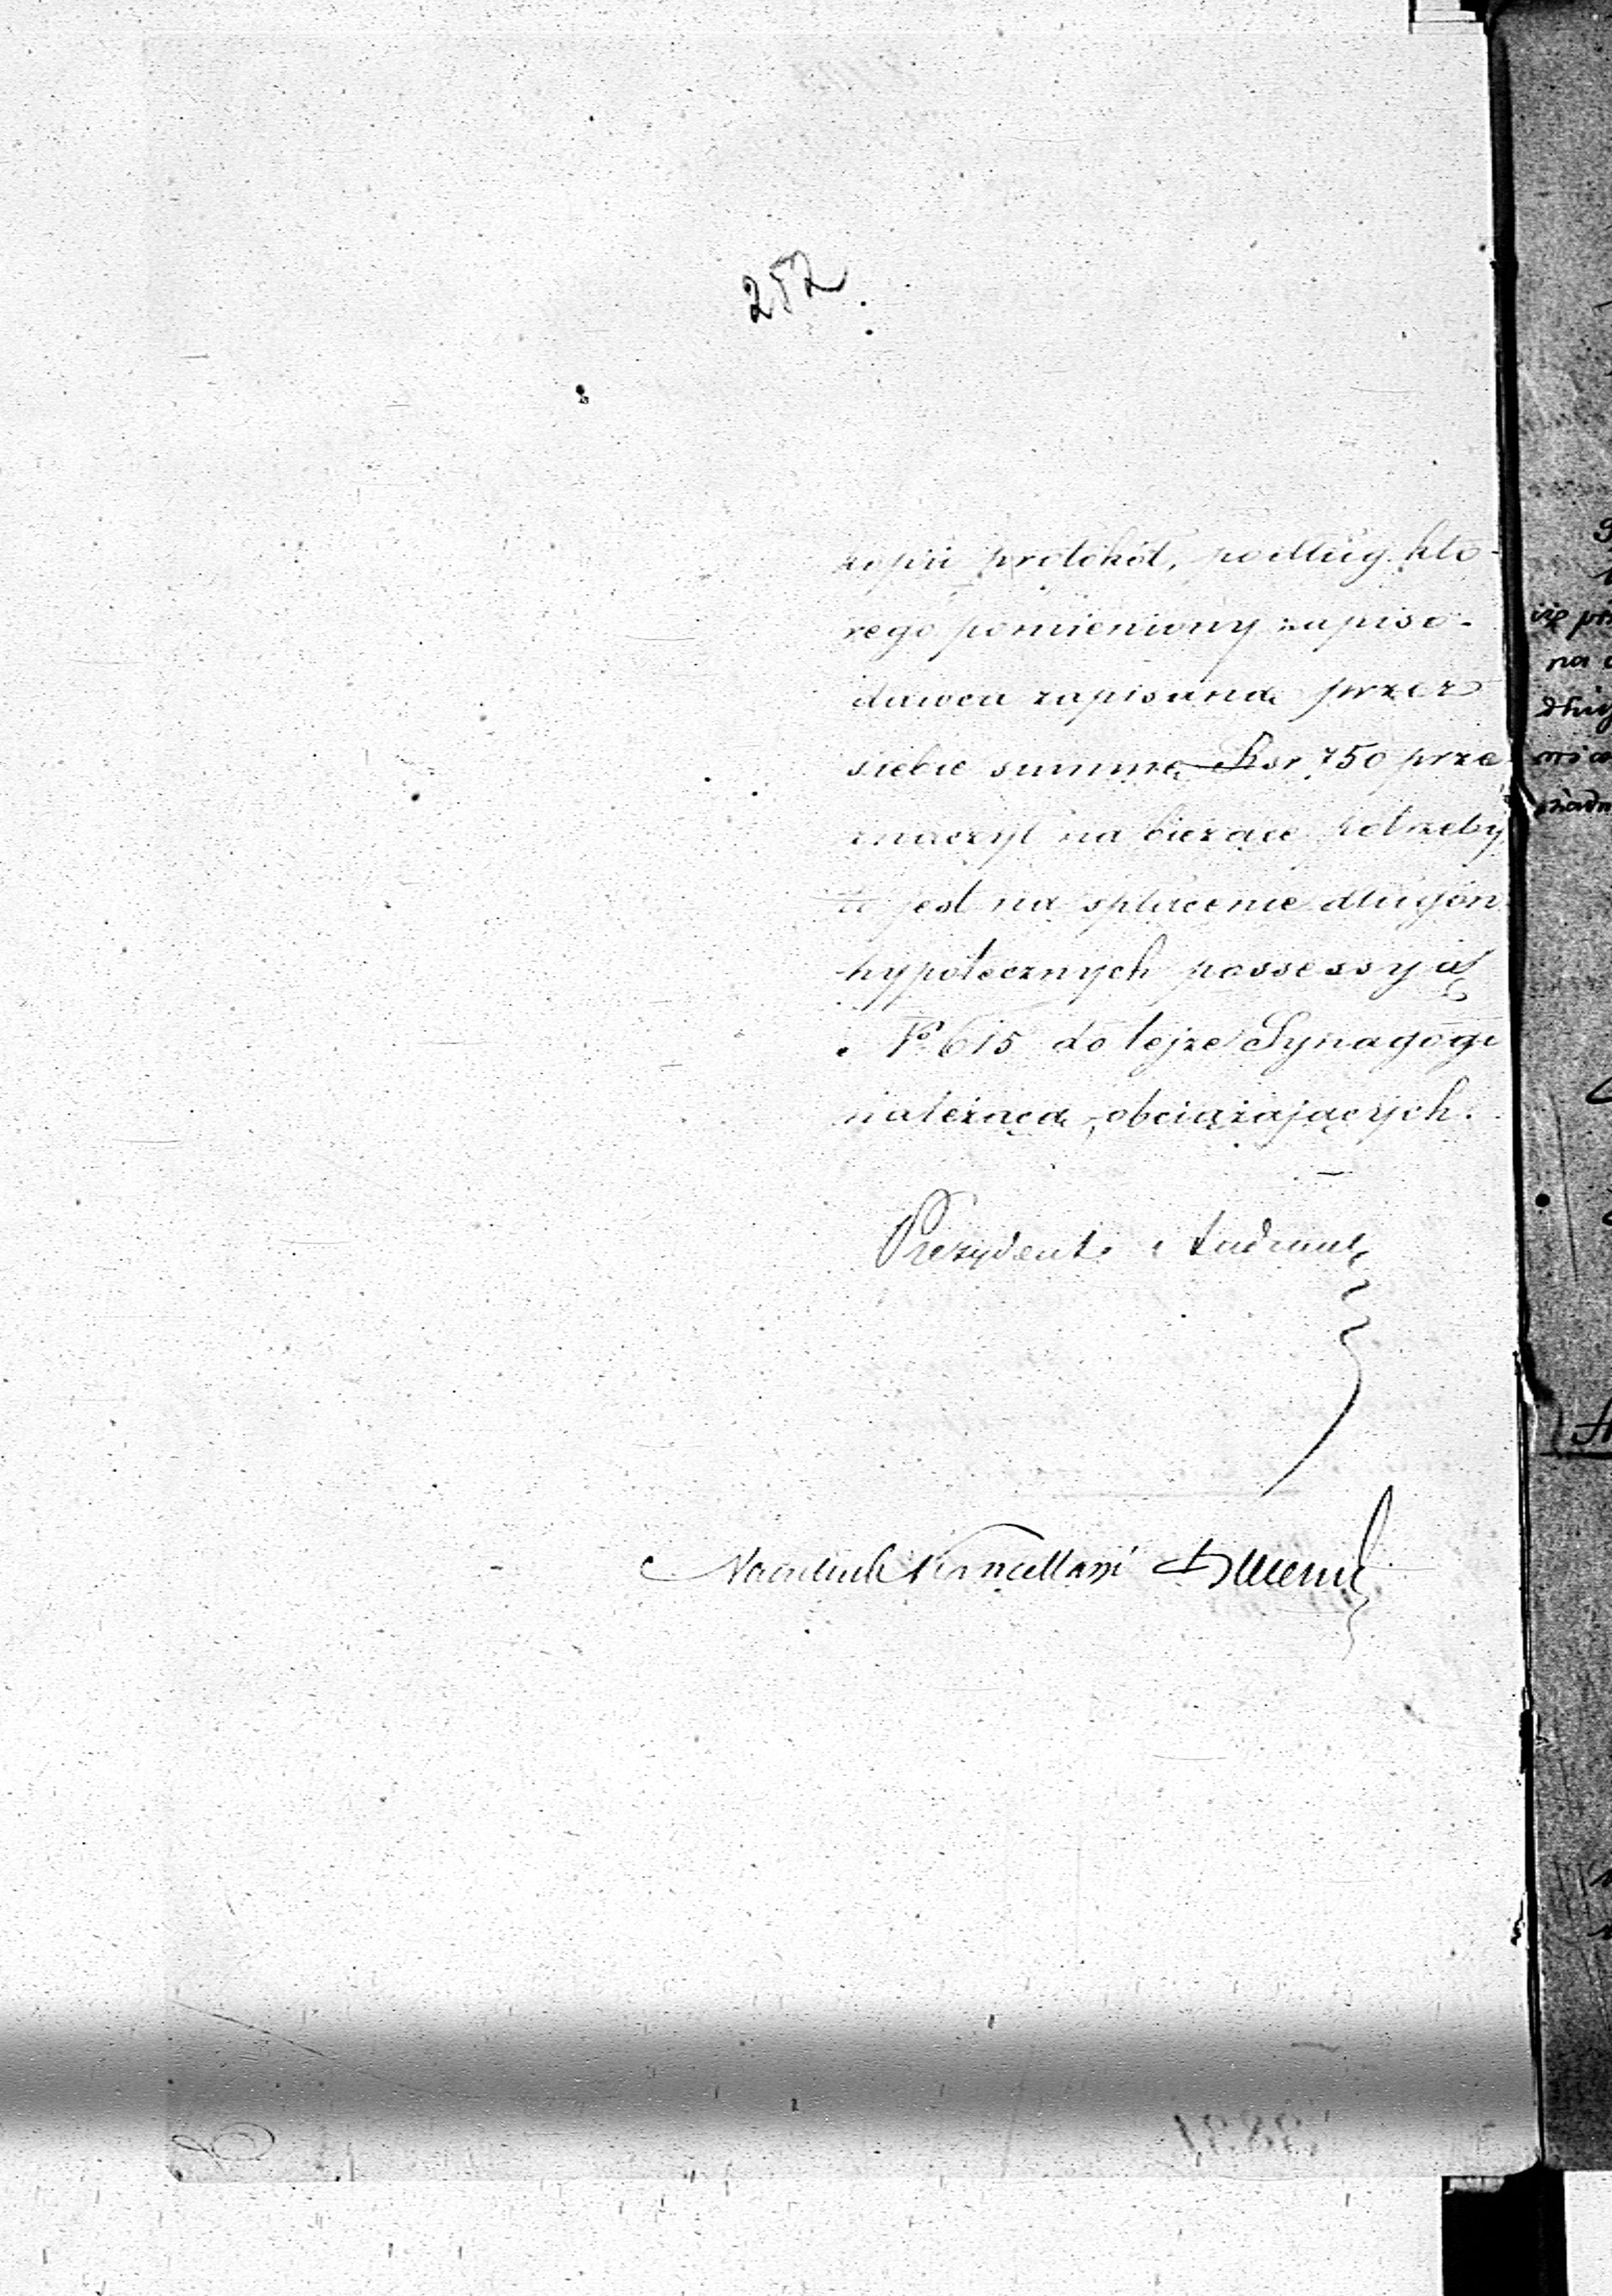 252
kopii protokół, podług któ-
rego pomieniony zapiso-
dawca zapisaną przez
siebie summę Rsr 750 prze
znaczył na bieżące potrzeby
to jest na spłacenie długów
hypotecznych possessyą
N° 615 do tejże Synagogi
należącą, obciążających.
Prezydent
Naczelnik Kancellaryi